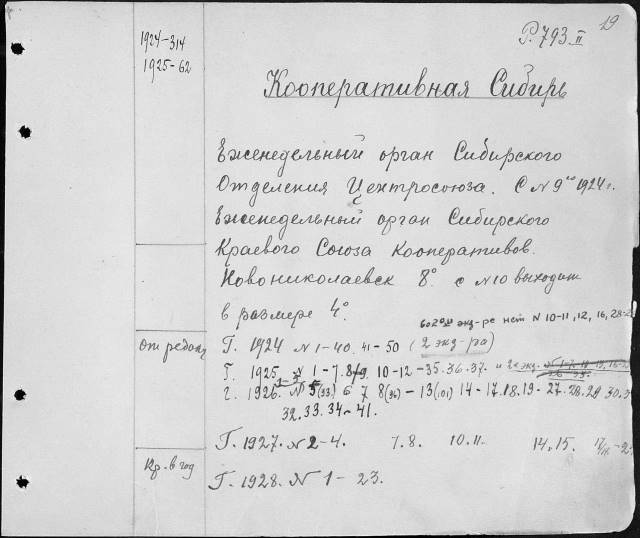 19
Р. 793 II
1924-314
1925-62
Кооперативная Сибирь
Еженедельный орган Сибирского
Отделения Центросоюза. С № 9го 1924 г.
Еженедельный орган Сибирского
Краевого Союза Кооперативов.
Новониколаевск 8° с № 10 выходит
в размере 4°.
во 2ом экз-ре нет № 10-11, 12, 16, 28-2
от редакц
Г. 1924 № 1-40. 41-50 (2 экз-ра)
Г. 1925. № 1-7. 8/9, 10-12-35. 36. 37. и 2й экз.
Г. 1926. № 5(33) 6 7 8(36) - 13(101) 14-17. 18. 19-27. 28. 29 30. 3
32. 33. 34-41.
Г. 1927. № 2-4. 7. 8. 10. 11. 14. 15.
Кр. в год
Г. 1928. № 1-23.